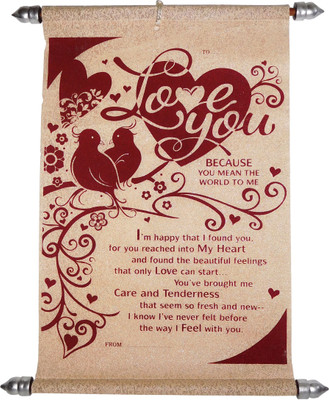 TO
Love
you
BECAUSE
YOU MEAN THE
WORLD TO ME
I'm happy that I found you,
for you reached into My Heart
and found the beautiful feelings
that only Love can start...
You've brought me
Care and Tenderness
that seem so fresh and new--
I know I've never felt before
the way I Feel with you.
FROM